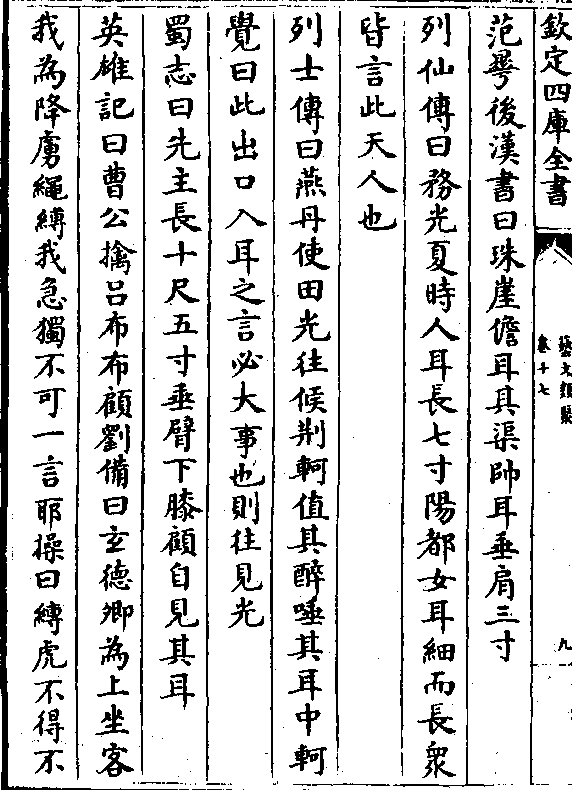 欽定四庫全書
藝文類聚
卷十七
九
范曅後漢書曰珠崖儋耳其渠帥耳垂肩三寸
列仙傳曰務光夏時人耳長七寸陽都女耳細而長衆
皆言此天人也
列士傳曰燕丹使田光往候荆軻值其醉唾其耳中軻
覺曰此出口入耳之言必大事也則往見光
蜀志曰先主長十尺五寸垂臂下膝顧自見其耳
英雄記曰曹公擒吕布布顧劉備曰玄德卿為上坐客
我為降虜繩縛我急獨不可一言耶操曰縛虎不得不